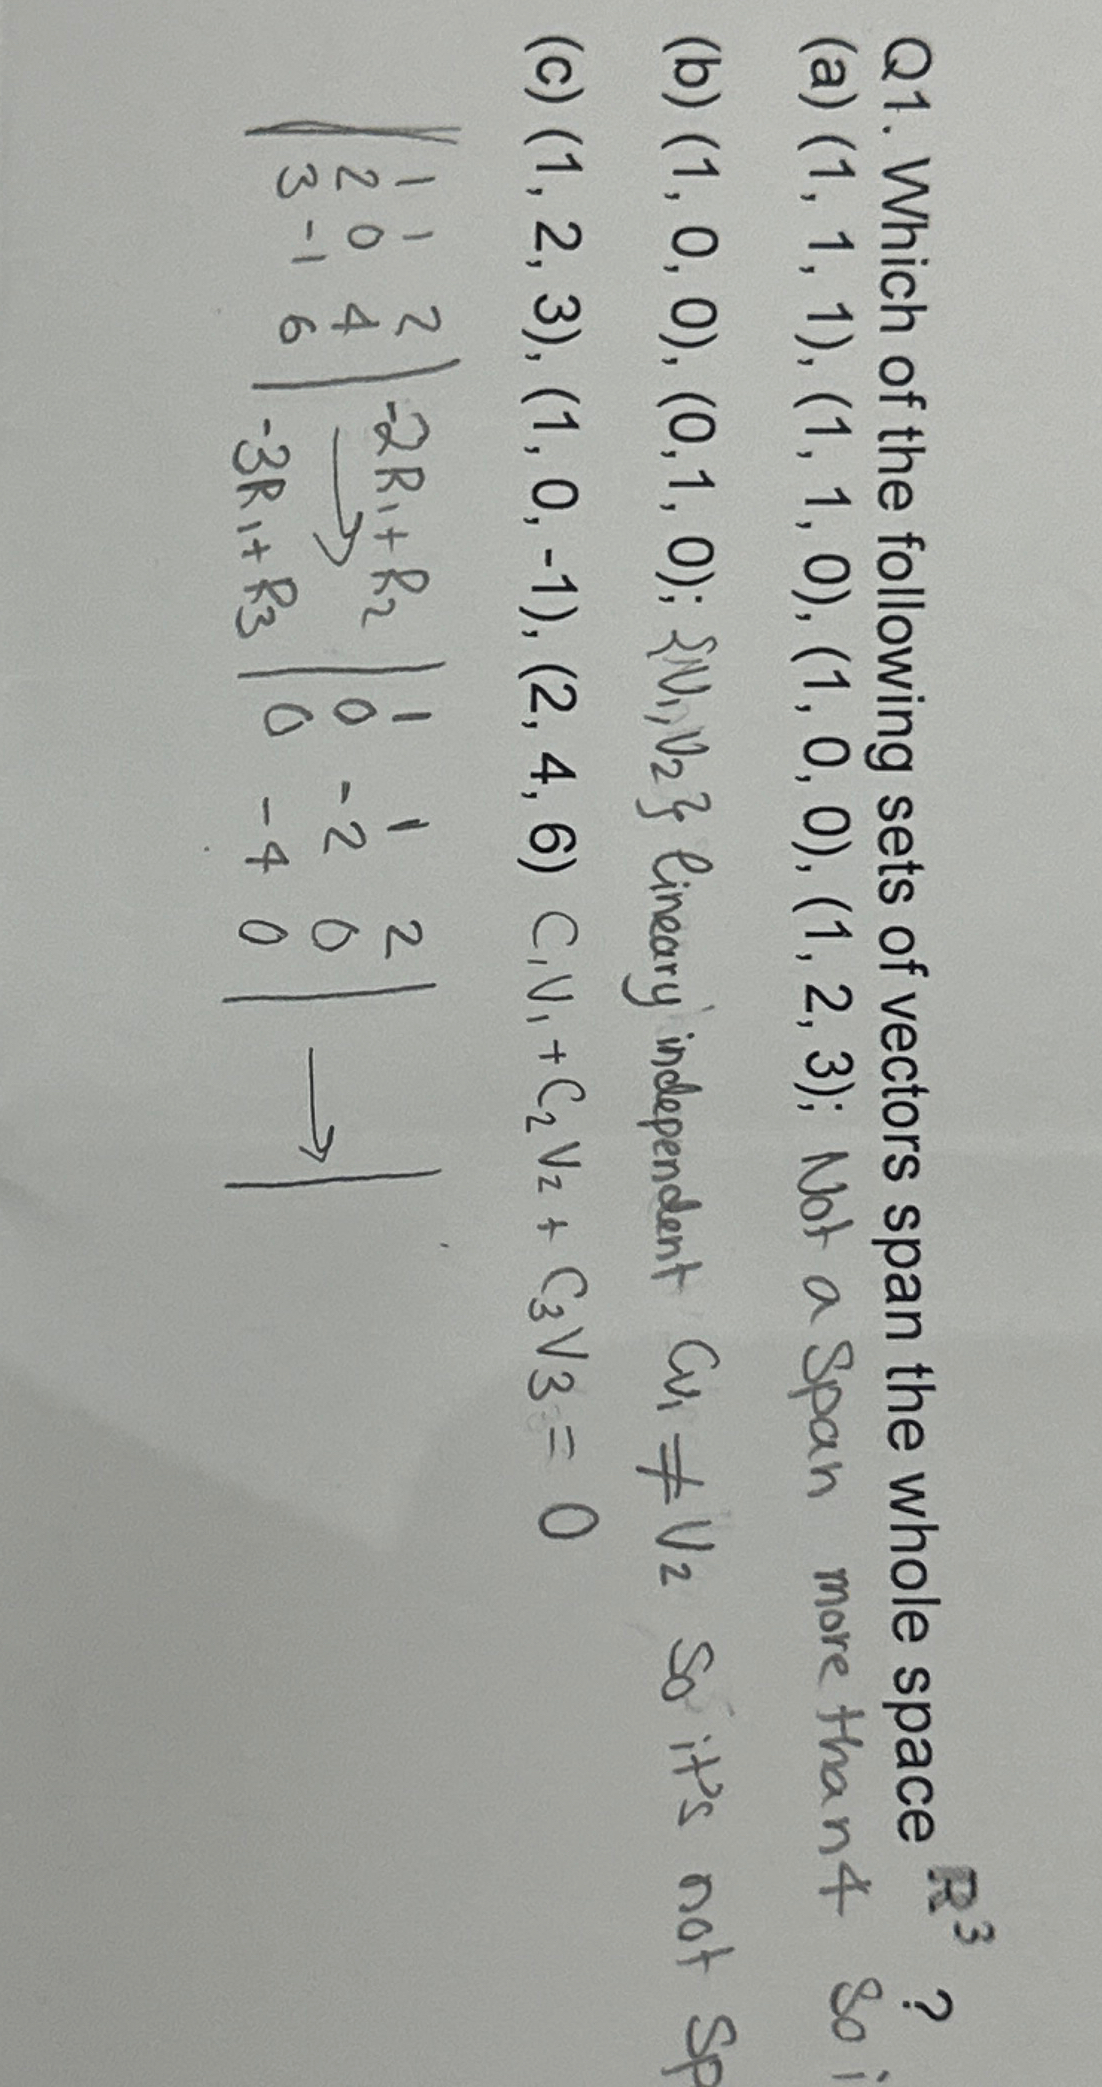 Q1. Which of the following sets of vectors span the whole space R³ ?
(a) (1, 1, 1), (1, 1, 0), (1, 0, 0), (1, 2, 3); Not a Span more than 4 So i
(b) (1, 0, 0), (0, 1, 0); {V₁, V₂} lineary independent CV₁ ≠ V₂ So it's not Sp
(c) (1, 2, 3), (1, 0, -1), (2, 4, 6) C₁V₁ + C₂V₂ + C₃V₃ = 0
| 1 1 2 | -2R₁+R₂ | 1 1 2 |
| 2 0 4 | → | 0 -2 0 | → |
| 3 -1 6 | -3R₁+R₃ | 0 -4 0 |